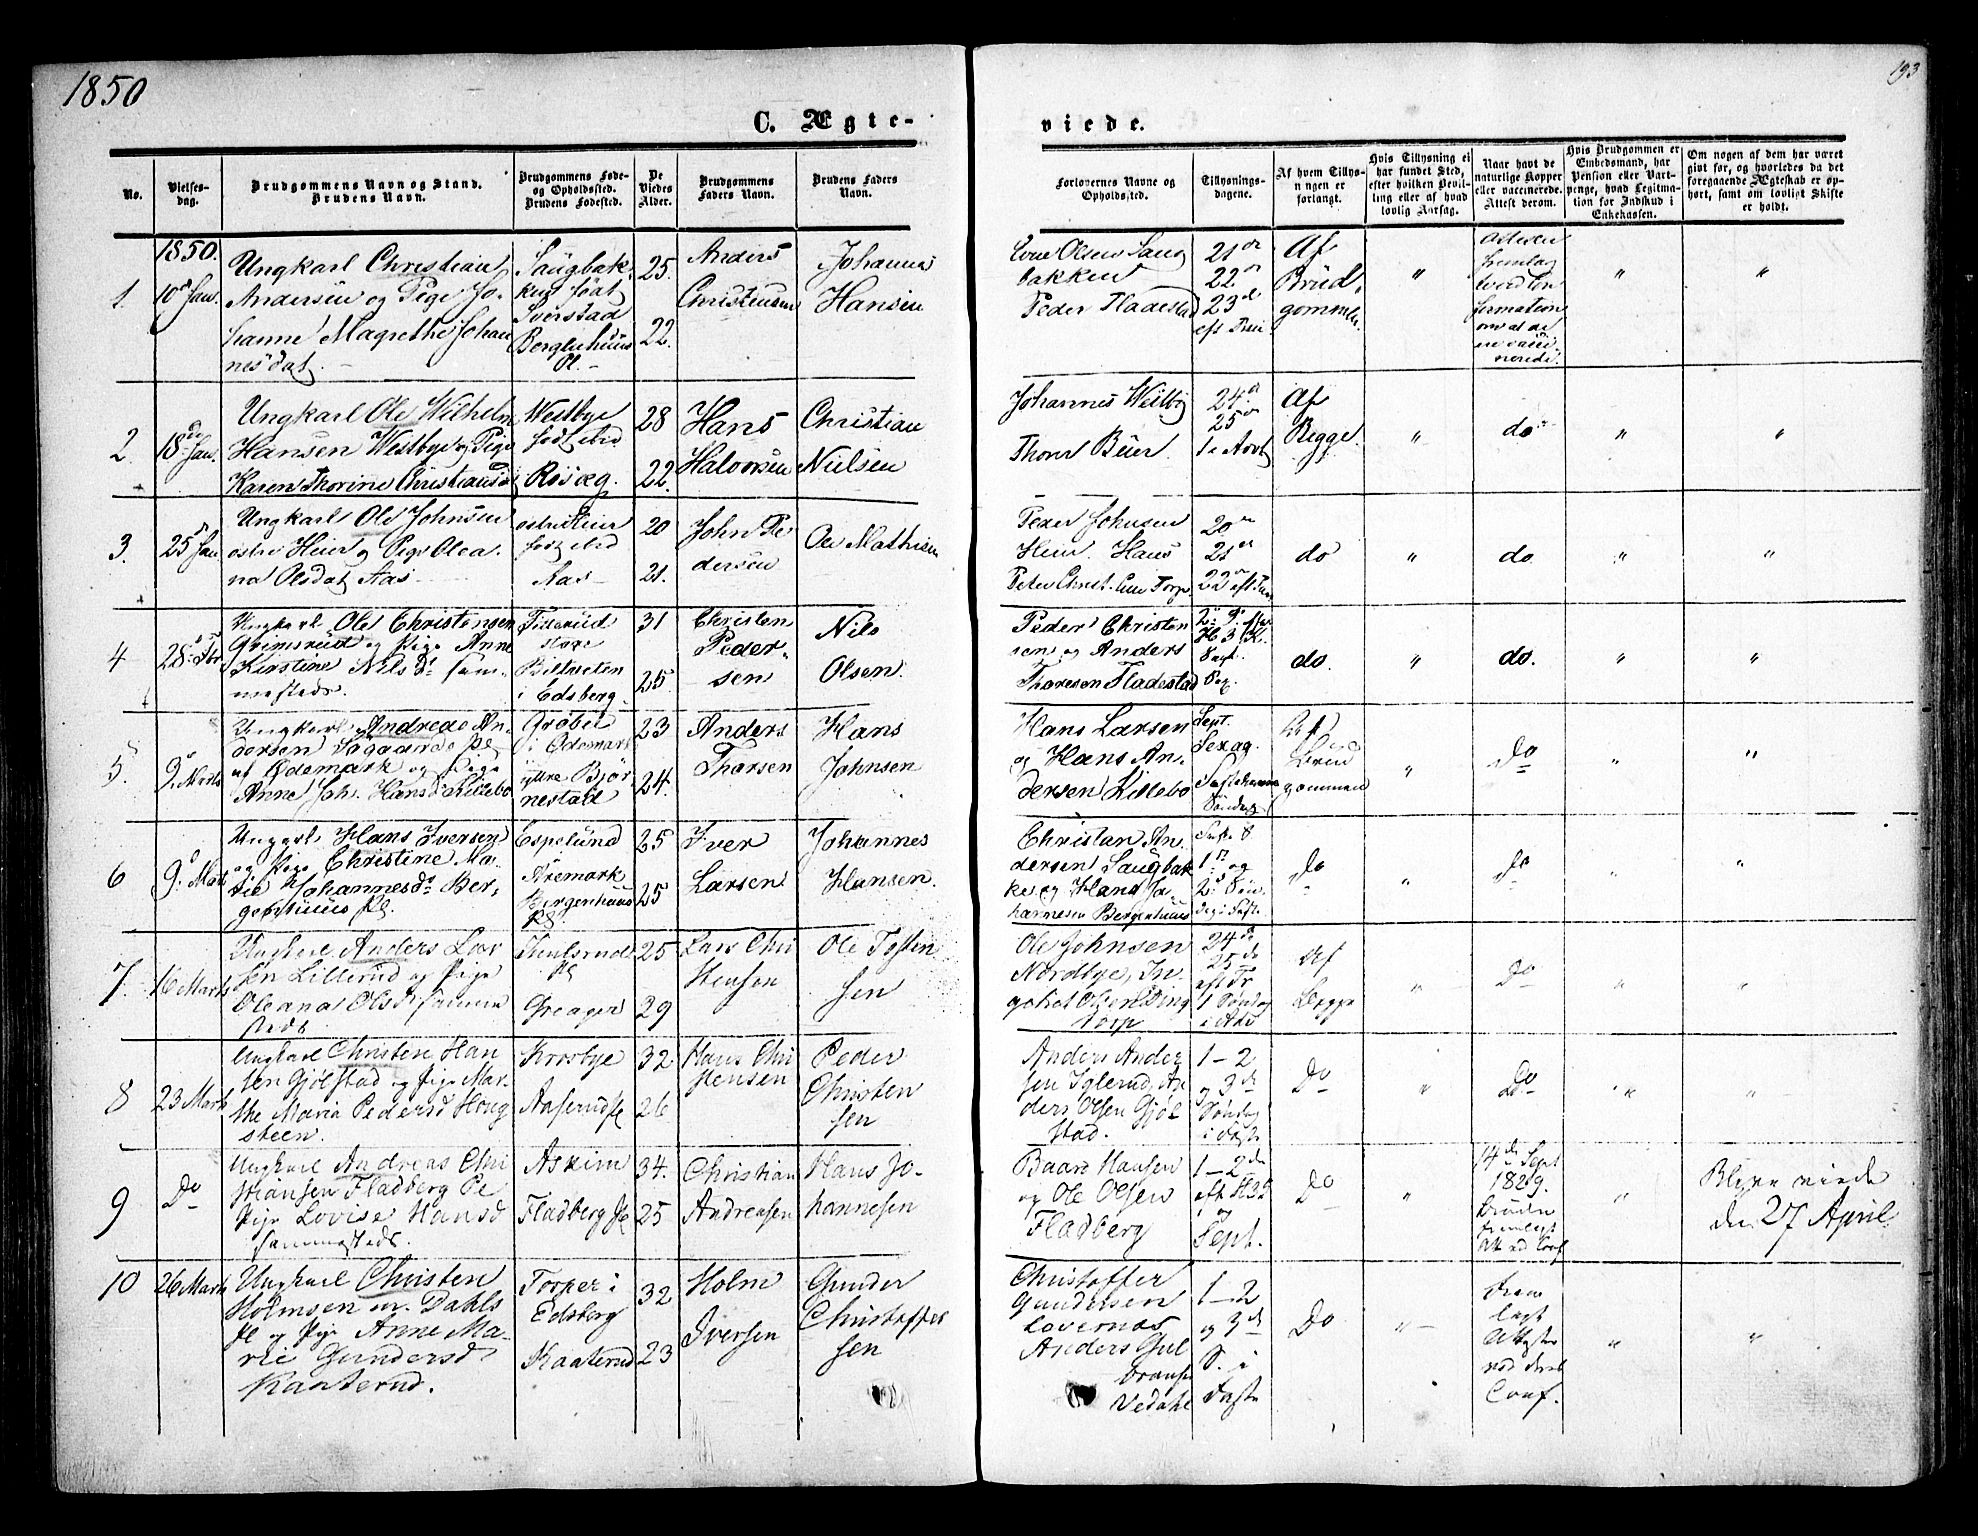 1850
193
C. Ægte-
viede.
No.
Vielses-
dag.
Brudgommens Navn og Stand.
Brudens Navn.
Brudgommens Føde-
og Opholdssted.
Brudens Fødested.
De
Viedes
Alder.
Brudgommens
Faders Navn.
Brudens Faders
Navn.
Forlovernes Navne og
Opholdssted.
Tillysnings-
dagene.
Af hvem Tillys-
ningen er
forlangt.
Hvis Tillysning ei
har fundet Sted,
efter hvilken Bevil-
ling eller af hvad
lovlig Aarsag.
Naar havt de
naturlige Kopper
eller vaccinerede.
Attest derom.
Hvis Brudgommen er
Embedsmand, har
Pension eller Vart-
penge, hvad Legitima-
tion for Indskud i
Enkekassen.
Om nogen af dem har været
gift før, og hvorledes da det
foregaaende Ægteskab er op-
hørt, samt om lovligt Skifte
er holdt.
1850.
1.
10d Jan.
Ungkarl Christian
Andersen og Pige Jo-
hanne Magrethe Johan
nesdat.
Saugbak
ken født
Berglehuus
Pl.
25.
22.
Anders
Christensen
Johannes
Hansen
Olsen Saug
bakken
Peder Fladestad
21de
22de
23de
Af
Brud-
gommen
"
"
"
2
18de Jan.
Ungkarl Ole Wilhelm
Hansen Westbye og Pige
Karen Thorine Christiansd
Westbye
født ibid
Rosæg.
28
22.
Hans
Halvorsen
Christian
Nielsen
Johannes Westby
Thorer Buer.
24de
25de
Af
Begge.
"
do
"
"
3.
25d Jan
Ungkarl Ole Johnsen
østre Heier og Pige Olea-
na Olsdat Aas
østre Heier
født ibid
Aas
20
21.
John Pe
dersen
Ole Mathisen
Peder Johnsen
Heier. Hans
Peter Christ.
20de
21de
22de
do
"
do.
"
"
4
28de Febr
Ungkarl Ole Christensen
Grimsrud og Pige Anne
Kirstine Nilsd. sam-
mesteds.
i Edsberg.
31
25.
Christen
Peder-
sen
Nils
Olsen.
Peder Christen
sen og Anders
Thoresen Fladestad
do.
"
do.
"
"
5.
9d Marts
Ungkarl Andreas An-
dersen
af Ødemark og Pige
Anne Joh. Hansd Killebo
i Ødemark
ytre Bjør
nestad
23
24.
Anders
Thorsen
Hans
Johnsen
Hans Larsen
og Hans An-
dersen Killebo
Sept.
Sexag.
Søndag
Af
Brud
gommen
"
Do
"
"
6
9d Marts
Ungkarl Hans Iversen
og Pige Christine Ma-
rie Johannesd. Ber-
genhuus Pl.
Espelund
i Aremark
Bergenhuus
Pl.
25
25
Iver
Larsen
Johannes
Hansen.
Christian An-
dersen Saugbak
ken og Hans Jo-
hannesen Bergenhuus
Do
"
Do
"
"
7
16 Marts
Ungkarl Anders Lar
sen Lillerud og Pige
Oleana Olsd samme
steds
Pl
Greager
25
29
Lars Chri
stensen
Ole Tosten
sen
Ole Johnsen
Nordbye, In-
torp
24de
25de
1 Søndag
Af
Begge
"
Do
"
"
8
23 Marts
Ungkarl Christen Han
sen Gjølstad og Pige Mar-
the Maria Pedersd Houg
steen.
Krosbye
Aaserud Pl
32
26
Hans Chri
stensen
Peder
Christen
sen
Anders Ander
sen Iglerud, An
ders Olsen Gjøl
stad.
1-2
og 3de
Søndag
i Faste
Do
"
Do
"
"
9
Do
Ungkarl Andreas Chri
stiansen Fladberg Pl
Pige Lovise Hansd
sammesteds.
Askim
Fladberg Pl
34.
25
Christian
Andreasen
Hans Jo-
hannesen
Baard Hansen
og Ole Olsen
Fladberg
1-2de
eft. H3K
og
Sept.
Do
"
14de Sept
1829.
Bruden
fremlagt
Att ved Conf
"
Bleve viede
den 27 April.
10
26 Marts
Ungkarl Christen
Holmsen u. Dahls
Pl og Pige Anne Ma-
rie Gundersd
Kaaterud.
Torper i
Edsberg
Kaaterud
32
23
Holm
Iversen
Gunder
Christoffer
sen
Christoffer
Gundersen
Lovernæs
Anders Gul
bransen
Vedahl
1-2
og 3de
S. i
Faste
Do
"
Frem
lagt
Attester
ved deres
Conf.
"
"